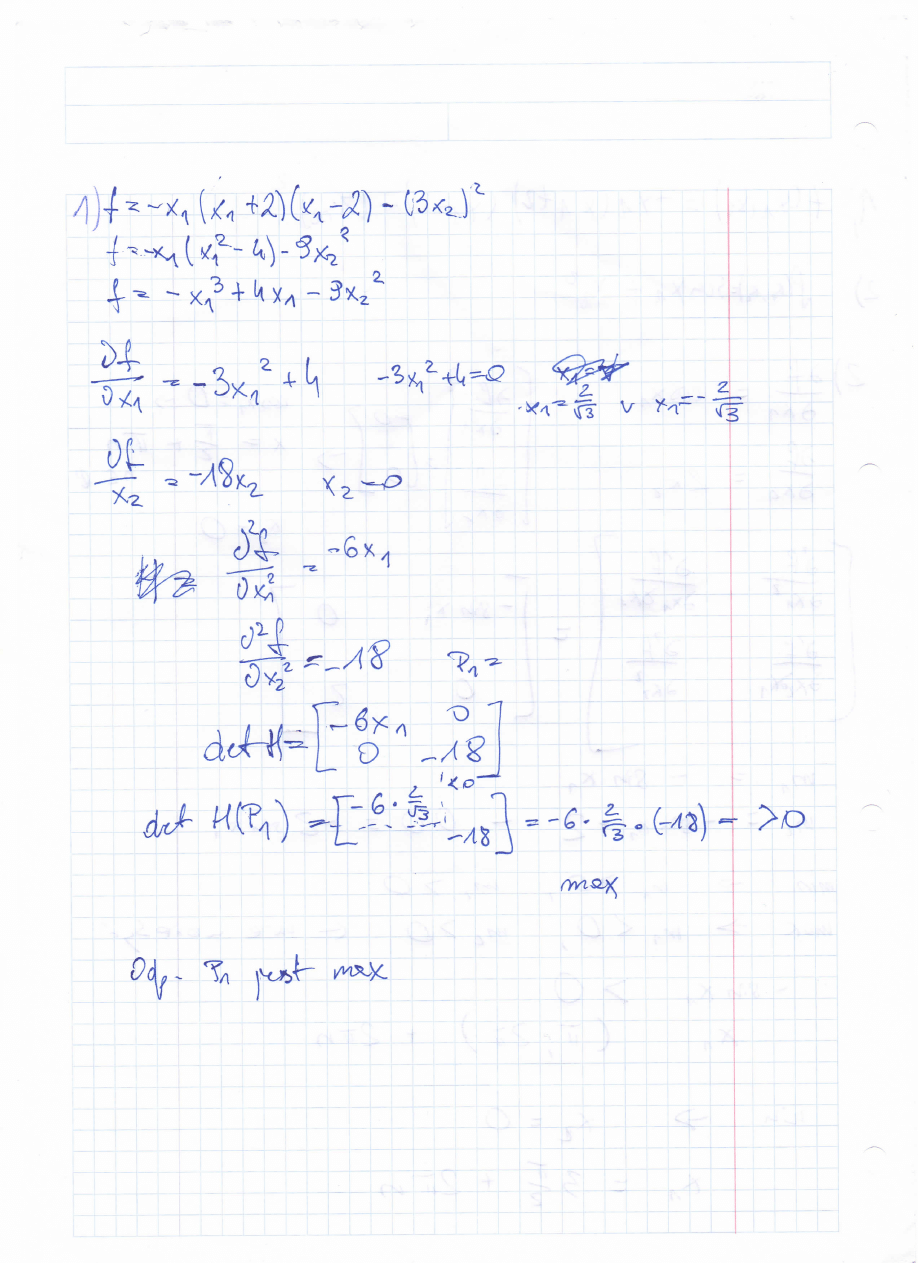 1) f = -x₁(x₁+2)(x₁-2) - (3x₂)²
f = -x₁(x₁²-4) - 9x₂²
f = -x₁³ + 4x₁ - 9x₂²
∂f/∂x₁ = -3x₁² + 4 -3x₁²+4=0
x₁ = 2/√3 v x₁ = -2/√3
∂f/x₂ = -18x₂ x₂ = 0
∂²f/∂x₁² = -6x₁
∂²f/∂x₂² = -18 P₁ =
det H = [-6x₁ 0
0 -18]
<0
det H(P₁) = [-6 · 2/√3 -18] = -6 · 2/√3 · (-18) = >0
max
Odp. P₁ jest max